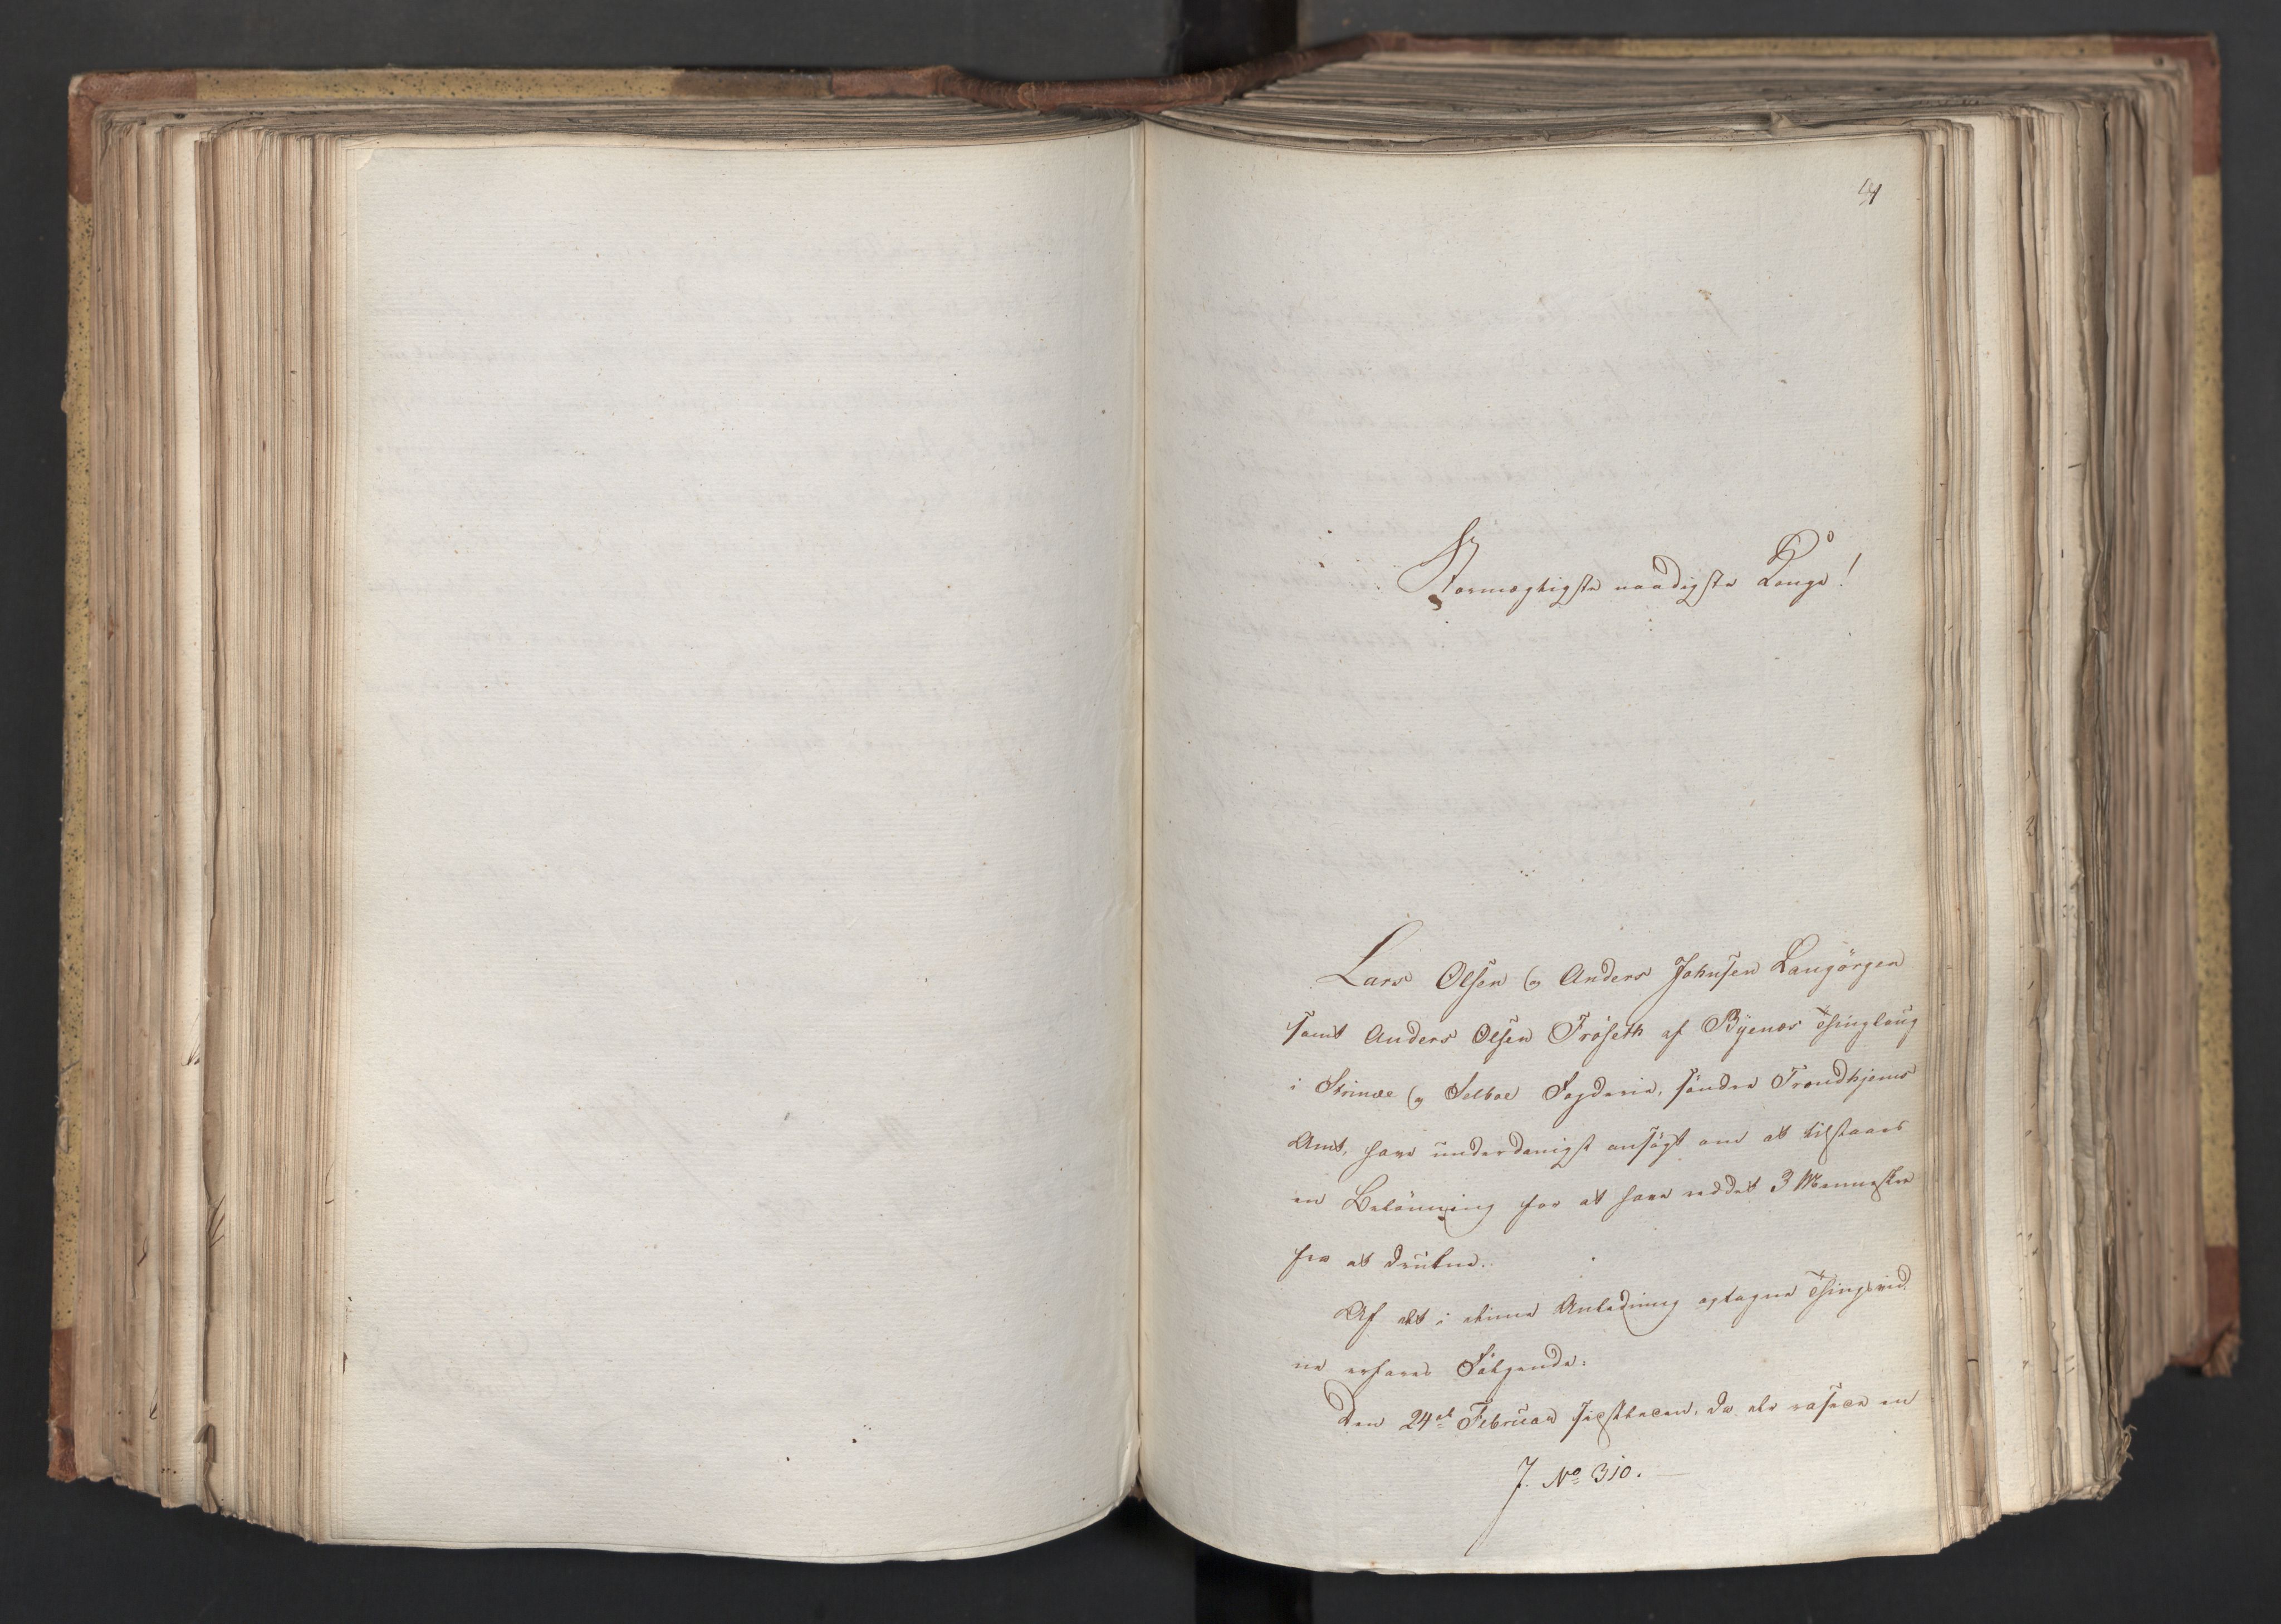 Stormægtigste naadigste Konge!
Lars Olsen og Anders Johnsen Langörgen
samt Anders Olsen Fröseth af Byenæs Thinglaug
i Strinde og Selboe Fogderie, söndre Trondhjems
Amt, have underdanigst ansögt om at tilstaaes
en Belönning for at have reddet 3 Mennesker
fra at drukne.
Af det i denne Anledning optagne Thingsvid
ne erfares Fölgende:
Den 24de Februar sidstleden, da der rasede en
J. No 310.